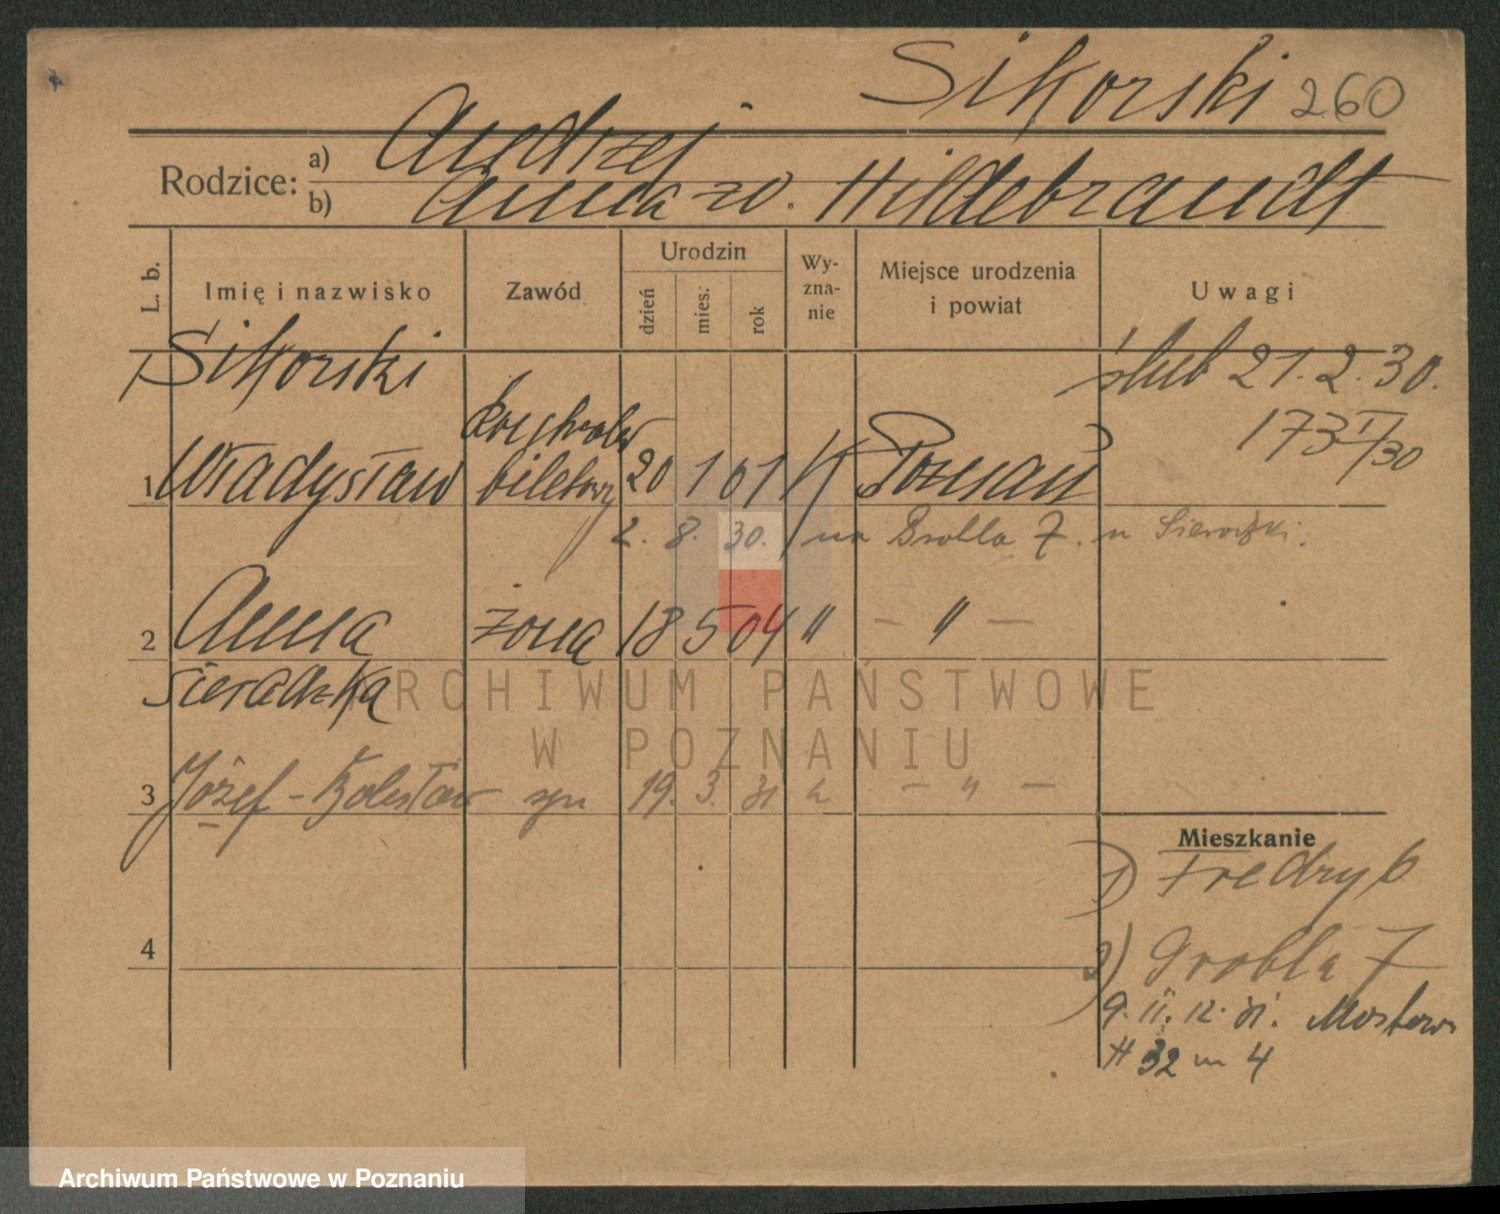 Sikorski 260
Rodzice: a) Andrzej
b) Anna zd. Hildebrandt
L. b. Imię i nazwisko Zawód Urodzin dzień mies. rok Wy-zna-nie Miejsce urodzenia i powiat Uwagi
Sikorski ślub 21.2.30.
173 I/30
1 Władysław biletowy 20 1 01 K Poznań
2. 8. 30. na Grobla 7. u Sieradzki.
2 Anna żona 18 5 04 " - " -
Sieradzka
3 Józef - Bolesław syn 19. 3. 31 k - " -
Mieszkanie
1) Fredry 6
2) Grobla 7
4
9. 11. 12. 31. Mostowa
32 m 4
ARCHIWUM PAŃSTWOWE
W POZNANIU
Archiwum Państwowe w Poznaniu